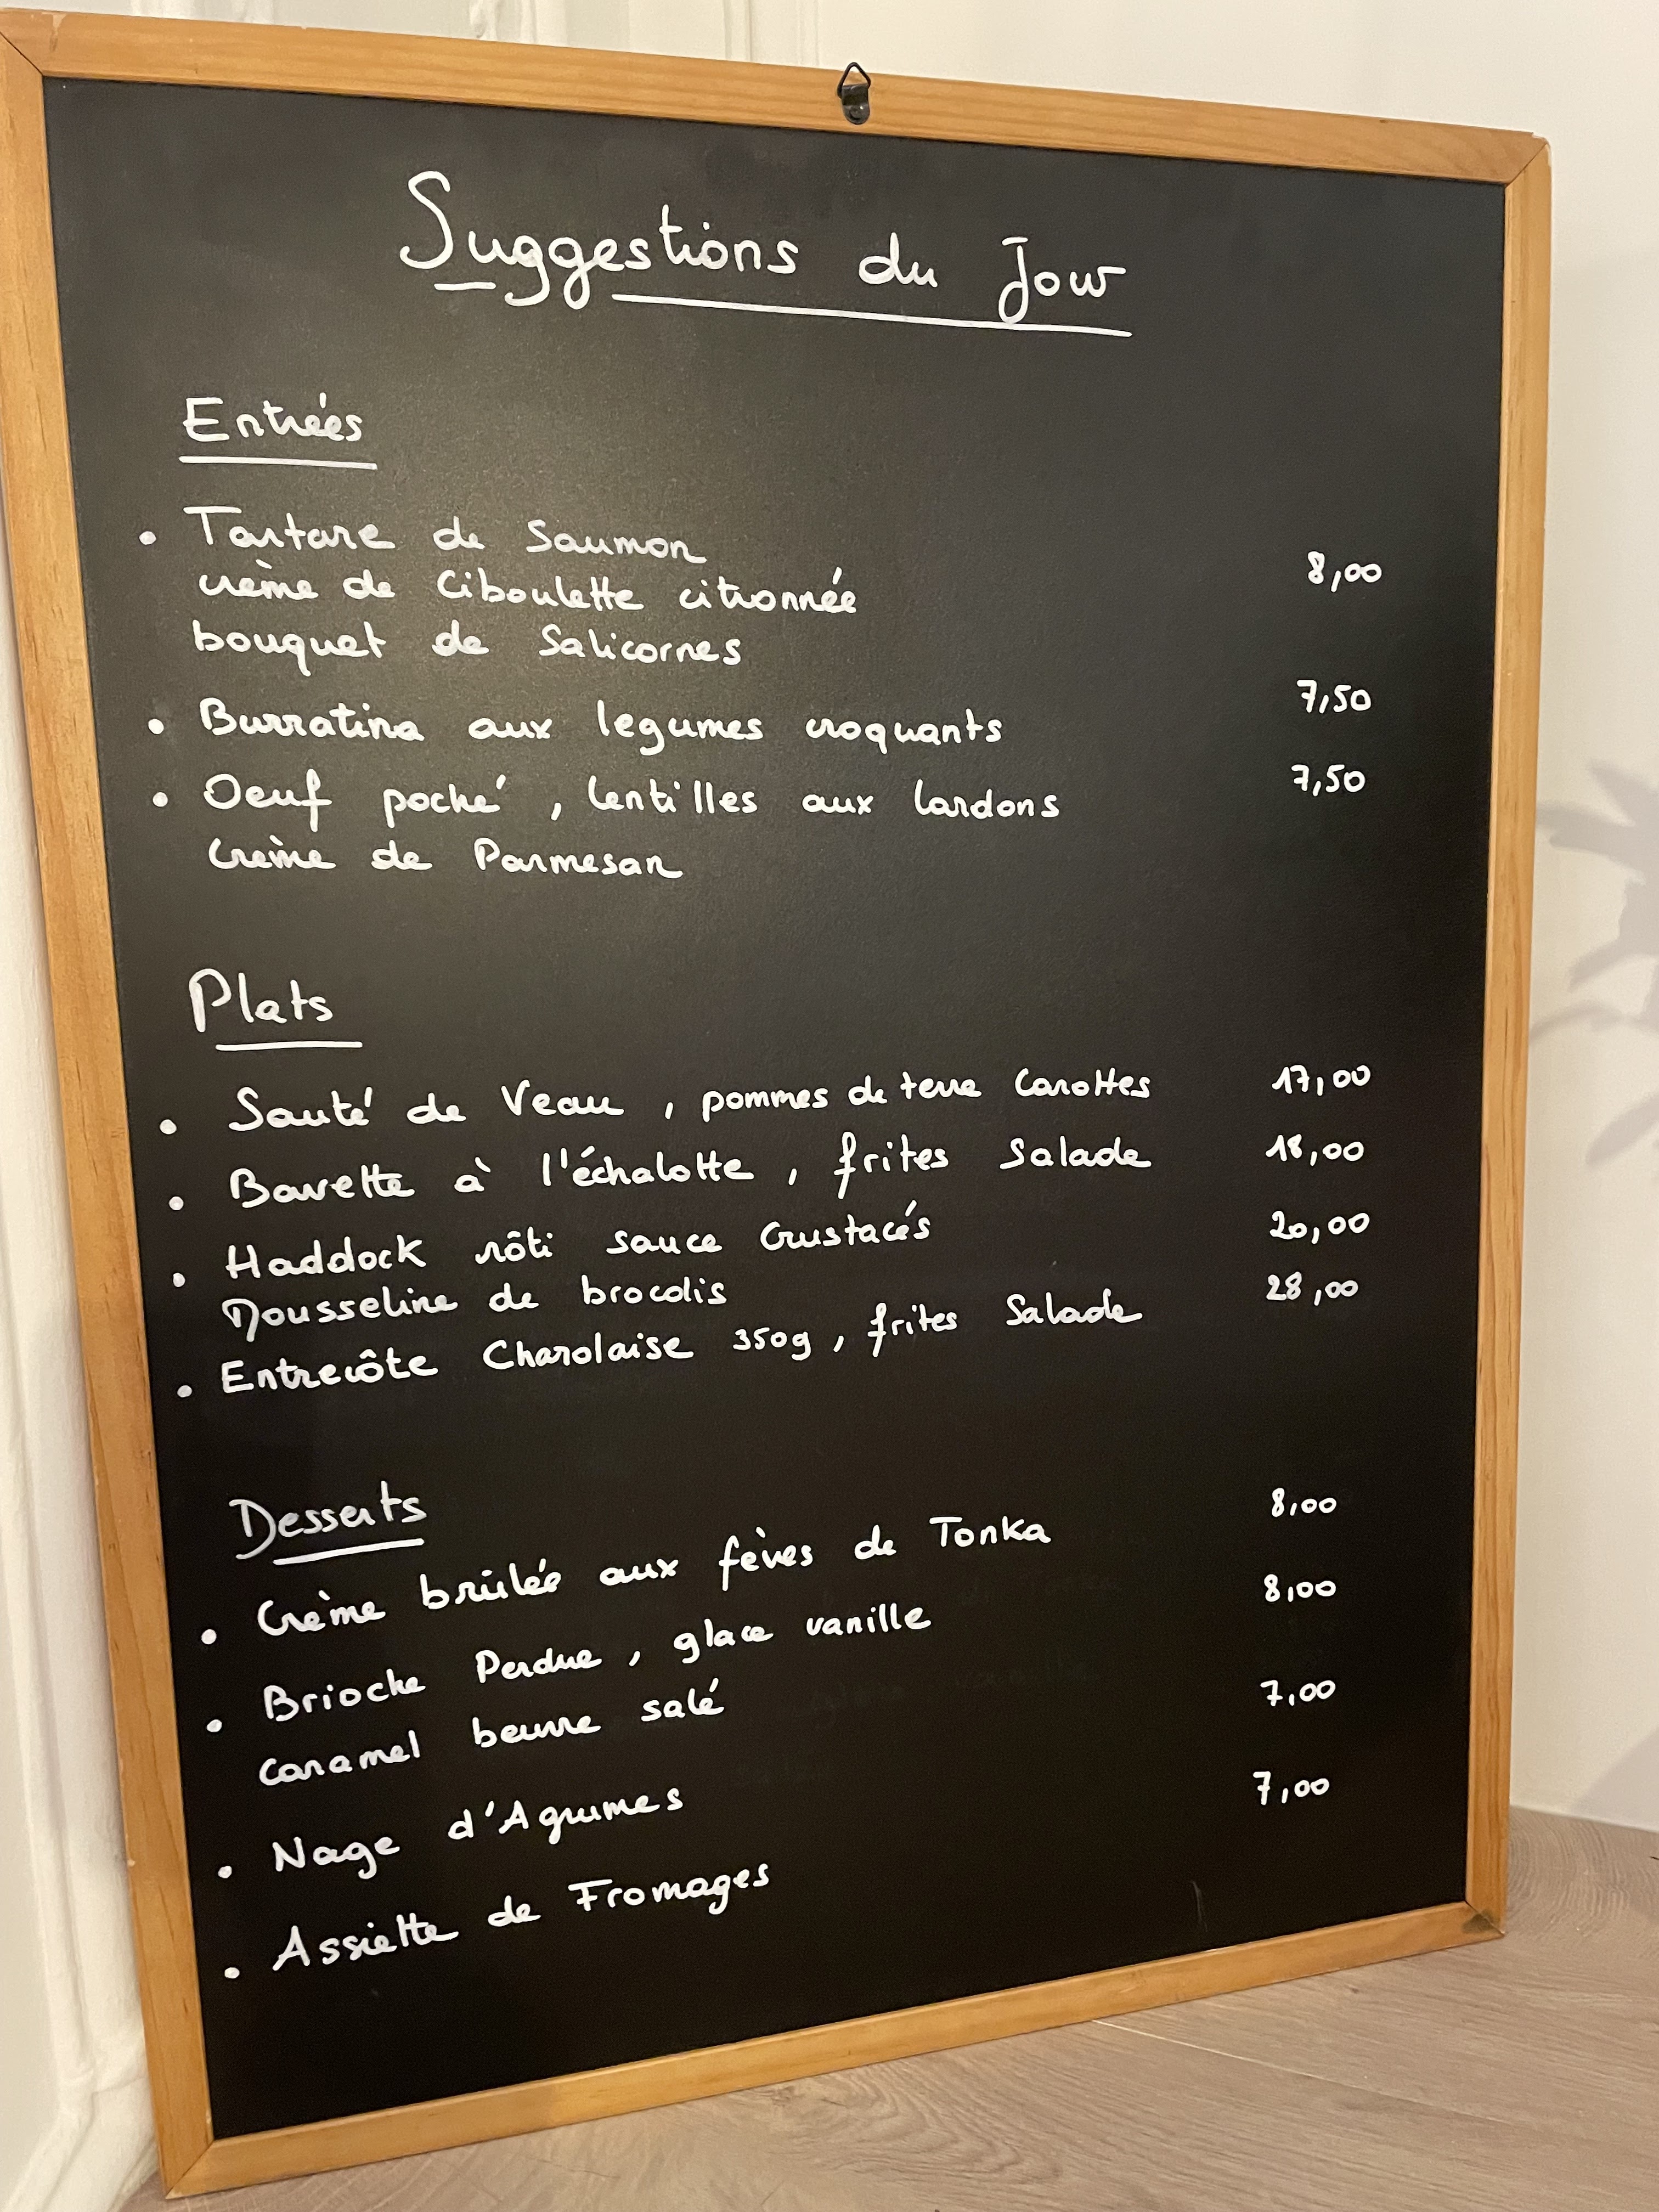 Suggestions du Jour
Entrées
• Tartare de Saumon 8,00
crème de Ciboulette citronnée
bouquet de Salicornes
• Burratina aux legumes croquants 7,50
• Oeuf poché, lentilles aux lardons 7,50
Crème de Parmesan
Plats
• Sauté de Veau, pommes de terre Carottes 17,00
• Bavette à l'échalotte, frites Salade 18,00
• Haddock rôti sauce Crustacés 20,00
Mousseline de brocolis
• Entrecôte Charolaise 350g, frites Salade 28,00
Desserts
• Crème brûlée aux fèves de Tonka 8,00
• Brioche Perdue, glace vanille 8,00
Caramel beurre salé
• Nage d'Agrumes 7,00
• Assiette de Fromages 7,00